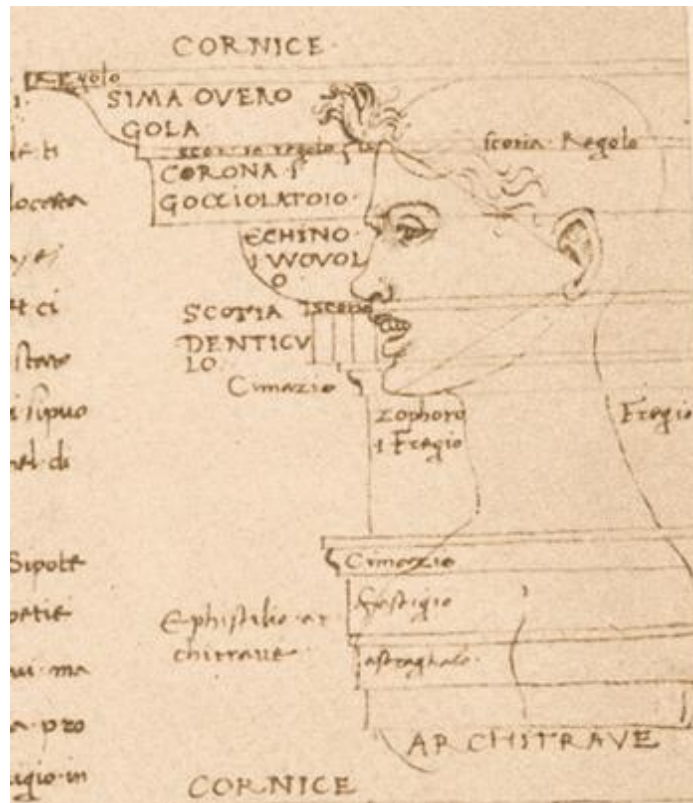 CORNICE
Regolo
SIMA OVERO
GOLA
scotia regolo
scotia Regolo
CORONA I
GOCCIOLATOIO
ECHINO
I WOVOL
O
SCOTIA
scotia
DENTICV
LO
Cimazio
zophoro
I Fregio
Fregio
Cimazio
fastigio
Ephistilio ar
chitrave
astraghalo
ARCHITRAVE
CORNICE
et ci
stare
nel di
Sipote